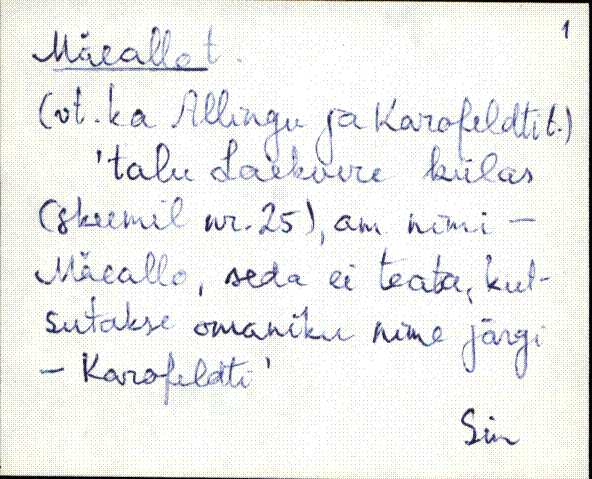 1
Mäeallo t.
(vt. ka Allingu ja Karofeldti t.)
'talu Laekvere külas
(skeemil nr. 25), am nimi –
Mäeallo, seda ei teata, kut-
sutakse omaniku nime järgi
– Karofeldti'
Sin